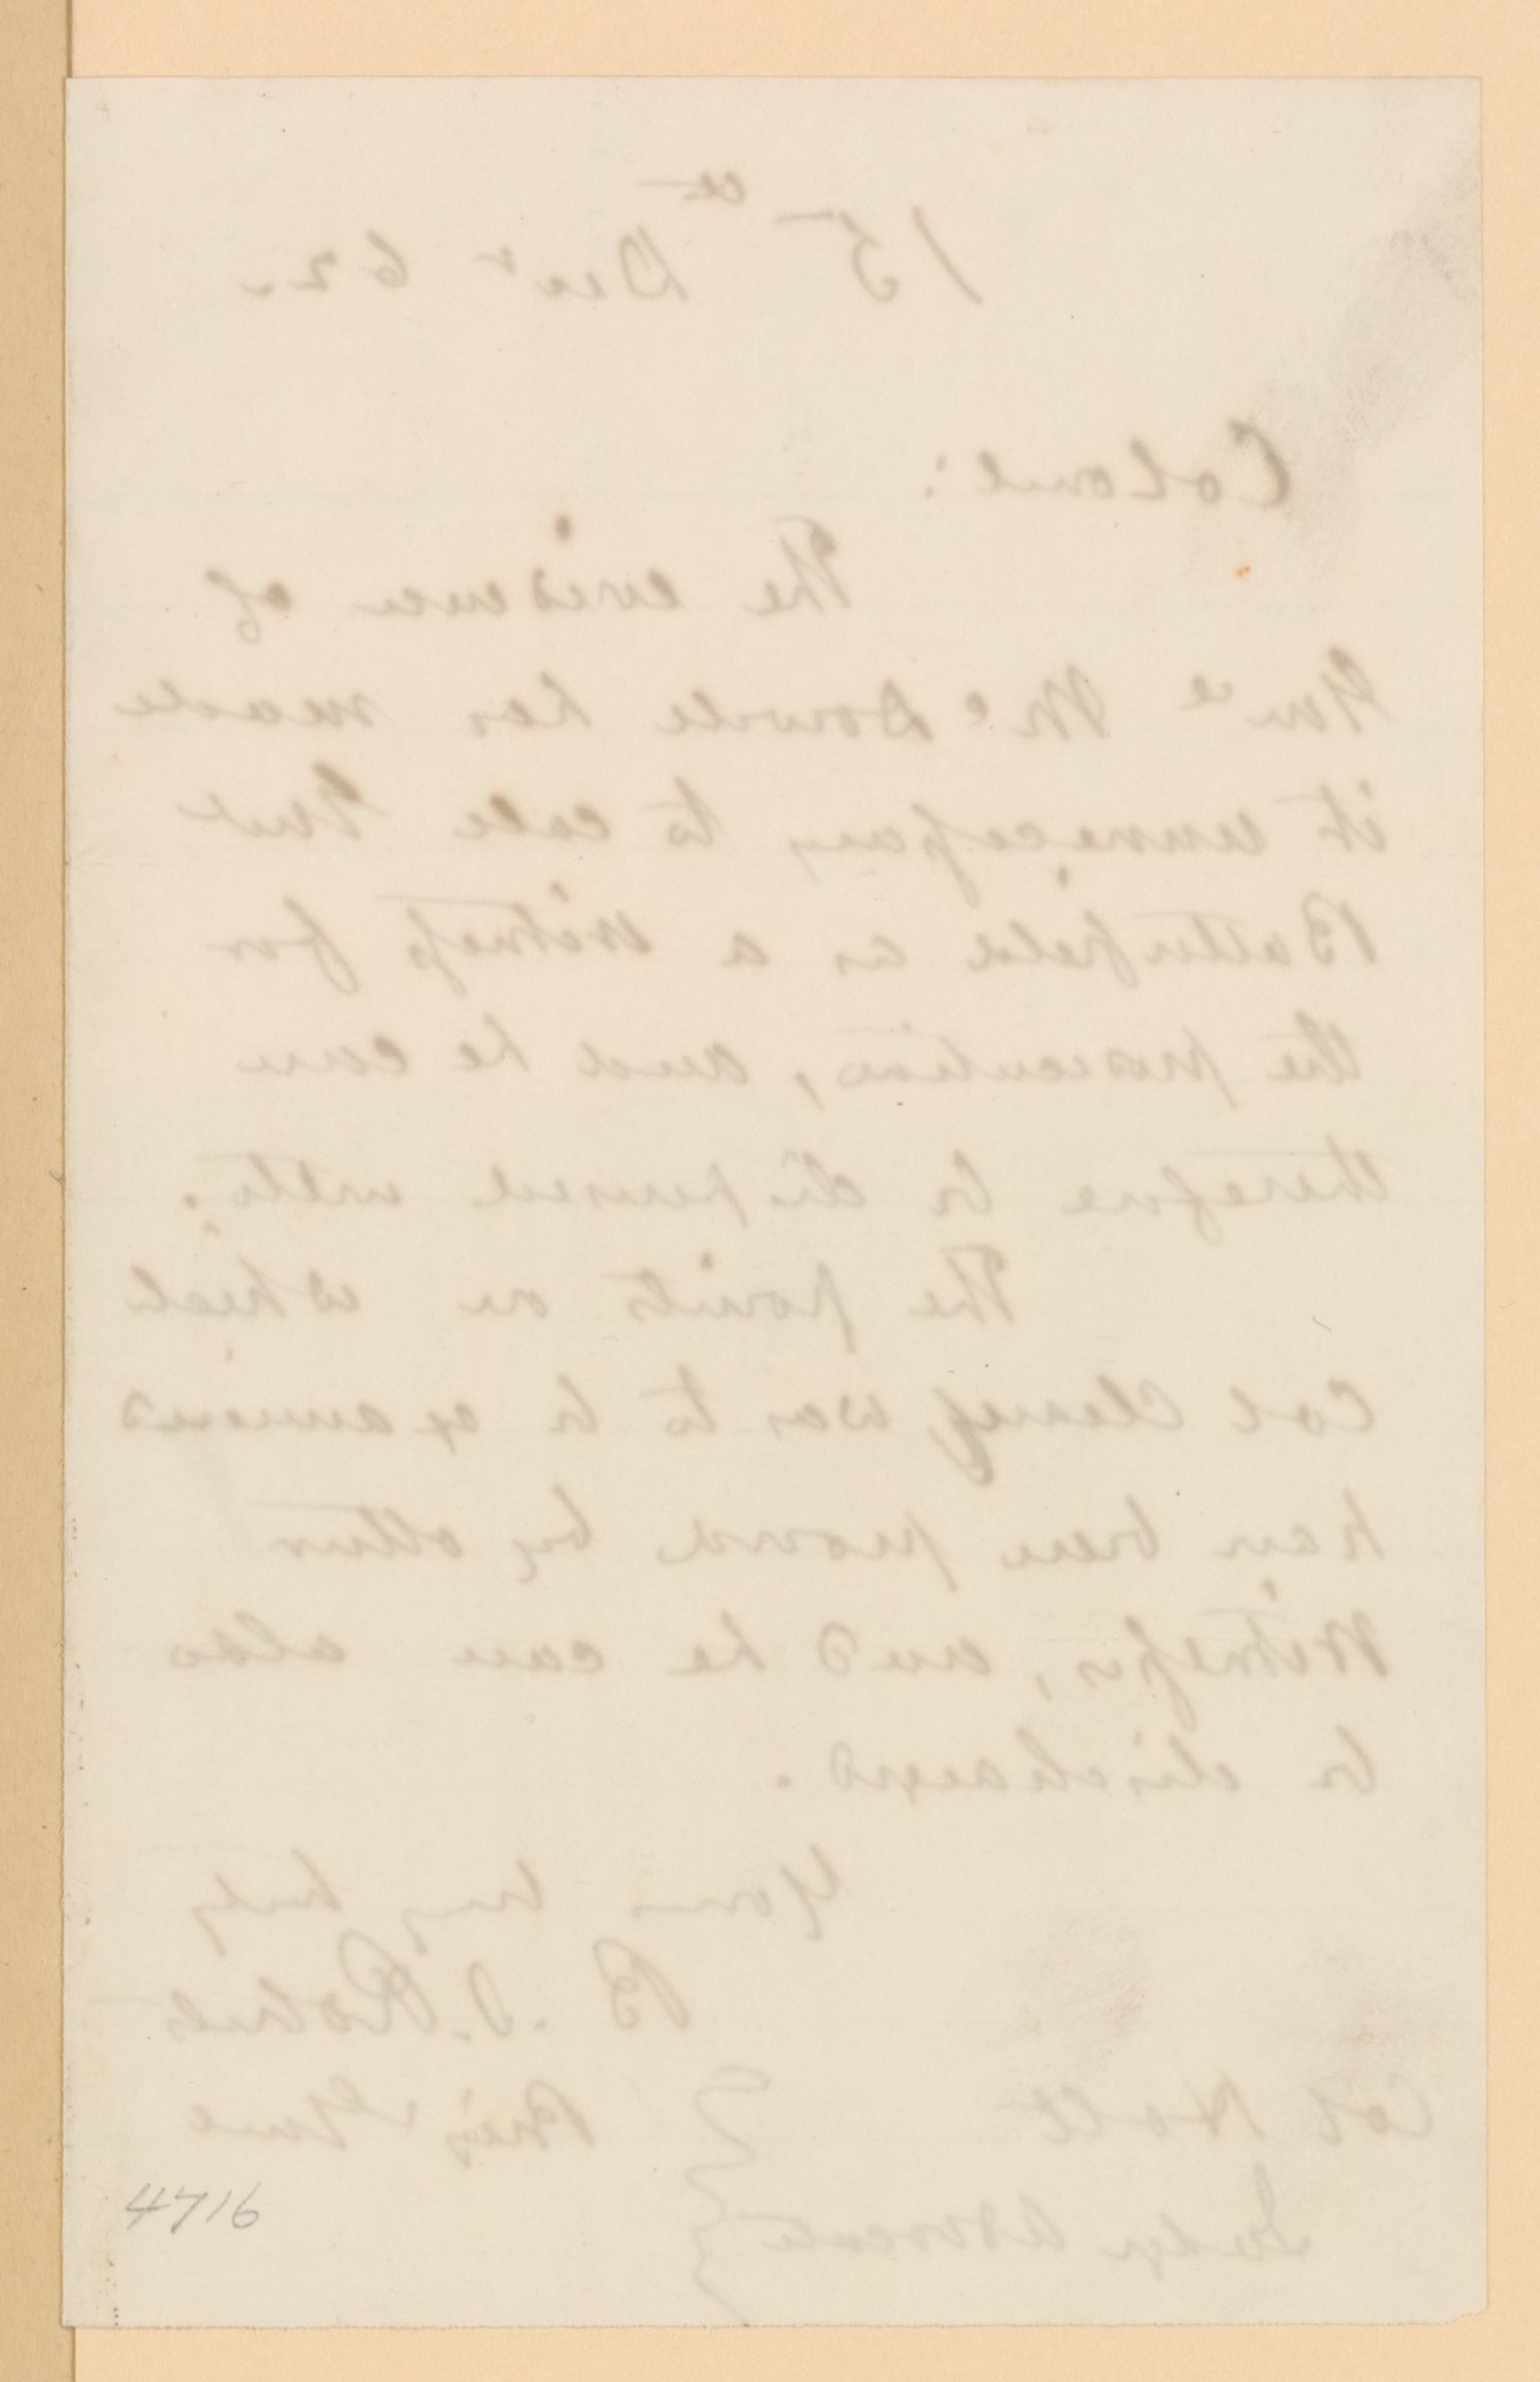 15th Decr 62.
Colonel:
The evidence of
Genl McDowell has made
it unnecessary to call Genl
Butterfield as a witness for
the prosecution, and he can
therefore be dispensed with.
The points on which
Col Clary was to be examined
have been proved by other
witnesses, and he can also
be discharged.
Yours very truly
B. S. Roberts
Col Holt
Brig Genl
Judge Advocate
4716